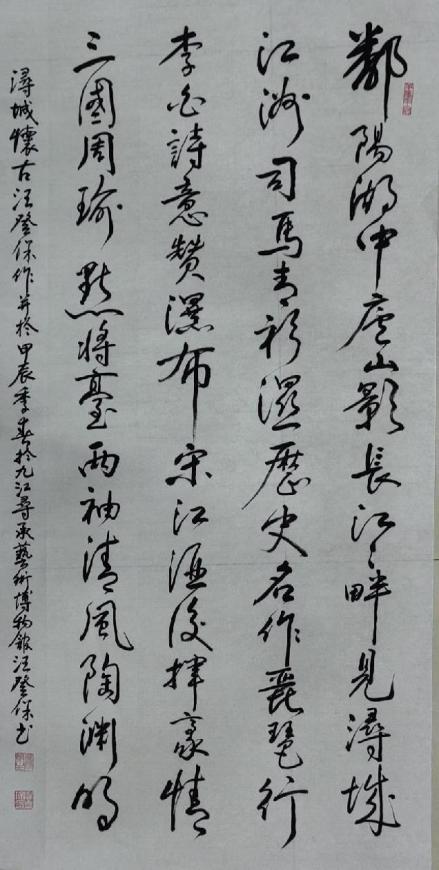 鄱陽湖中廬山影長江江畔見潯城
江洲司馬青衫濕歷史名作琵琶行
李白詩意贊瀑布宋江酒後揮豪情
三國周瑜點將臺兩袖清風陶渊明
潯城懷古汪登保作并於甲辰季春於九江尋承藝術博物館汪登保书